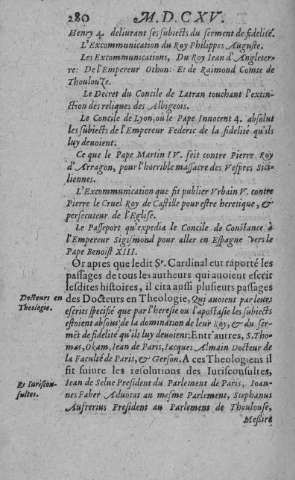 280 M. D C X V.
Henry 4. delivrant ses subiects du serment de fidelité.
L'Excommunication du Roy Philippes Auguste.
Les Excommunications, Du Roy Iean d'Angleter-
re: De l'Empereur Othon: Et de Raimond Comte de
Thoulouze.
Le Decret du Concile de Latran touchant l'extin-
ction des reliques des Albigeois.
Le Concile de Lyon, où le Pape Innocent 4. absolut
les subiects de l'Empereur Federic de la fidelité qu'ils
luy devoient.
Ce que le Pape Martin IV. feit contre Pierre Roy
d'Arragon, pour l'horrible massacre des Vespres Sici-
liennes.
L'Excommunication que fit publier Vrbain V. contre
Pierre le Cruel Roy de Castille pour estre heretique, &
persecuteur de l'Eglise.
Le Passeport qu'expedia le Concile de Constance à
l'Empereur Sigismond pour aller en Espagne vers le
Pape Benoist XIII.
Or apres que ledit Sr. Cardinal eut rapporté les
passages de tous les autheurs qui auoient escrit
lesdites histoires, il cita aussi plusieurs passages
Docteurs en Theologie.
des Docteurs en Theologie, Qui auoient par leurs
escrits specifié que par l'heresie ou l'apostasie les subiects
estoient absous de la domination de leur Roy, & du ser-
ment de fidelité qu'ils luy deuoient: Entr'autres, S. Tho-
mas, Okam, Iean de Paris, Iacques Almain Docteur de
la Faculté de Paris, & Gerson. A ces Theologiens il
Et Iuriscon-
sultes.
fit suiure les resolutions des Iurisconsultes,
Iean de Selue President du Parlement de Paris, Ioan-
nes Faber Aduocat au mesme Parlement, Stephanus
Aufrerius President au Parlement de Thoulouse,
Messire